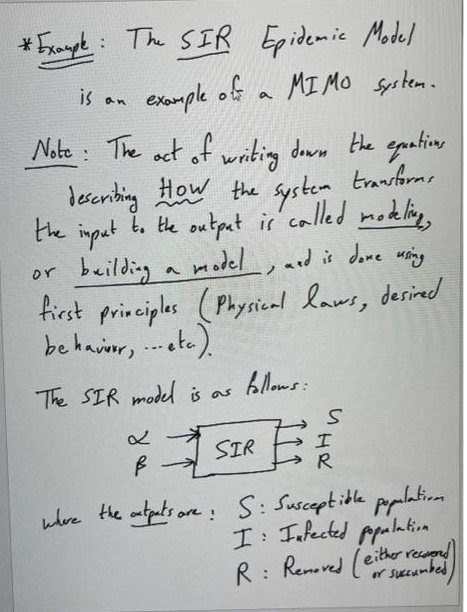 * Example : The SIR Epidemic Model
is an example of a MIMO system.
Note : The act of writing down the equations
describing HOW the system transforms
the input to the output is called modeling,
or building a model, and is done using
first principles (Physical laws, desired
behaviour, ... etc).
The SIR model is as follows:
α
β
SIR
S
I
R
where the outputs are : S : Susceptible population
I : Infected population
R : Removed (either recovered
or succumbed)